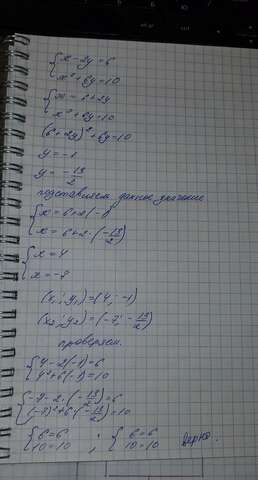 {x - 2y = 6
x² + 6y = 10
{x = 6 + 2y
x² + 6y = 10
(6 + 2y)² + 6y = 10
y = -1
y = -13/2
подставляем данное значение
{x = 6 + 2(-1)
x = 6 + 2·(-13/2)
{x = 4
x = -7
(x₁; y₁) = (4; -1)
(x₂; y₂) = (-7; -13/2)
проверяем.
{4 - 2(-1) = 6
4² + 6(-1) = 10
{-7 - 2·(-13/2) = 6
(-7)² + 6·(-13/2) = 10
{6 = 6 ; {6 = 6
10 = 10 10 = 10 Верно.